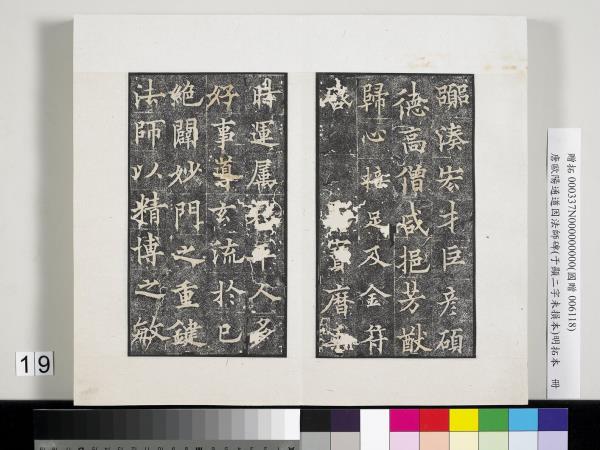 躡湊宏才巨彥碩
德高僧咸挹芳猷
歸心接足及金符
寶曆
時運屬 平人多
好事導玄流於已
絕闢妙門之重鍵
法師以精博之敏
贈拓 000337N000000000(國贈 006118)
唐歐陽通道因法師碑(于顯二字未損本)明拓本 冊
19